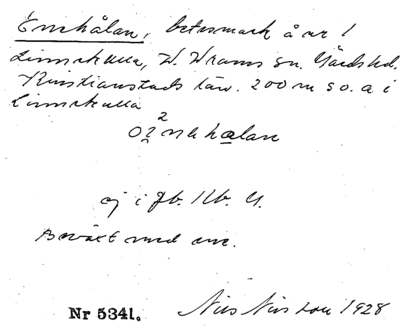 Enehålan, betesmark å nr 1
Linnekulla, V. Vrams sn. Gärds hd.
Kristianstads län. 200 m s o. a i
Linnekulla
ej i Jb. Kb. G.
Beväxt med ene.
Nr 5341. Nils Nilsson 1928